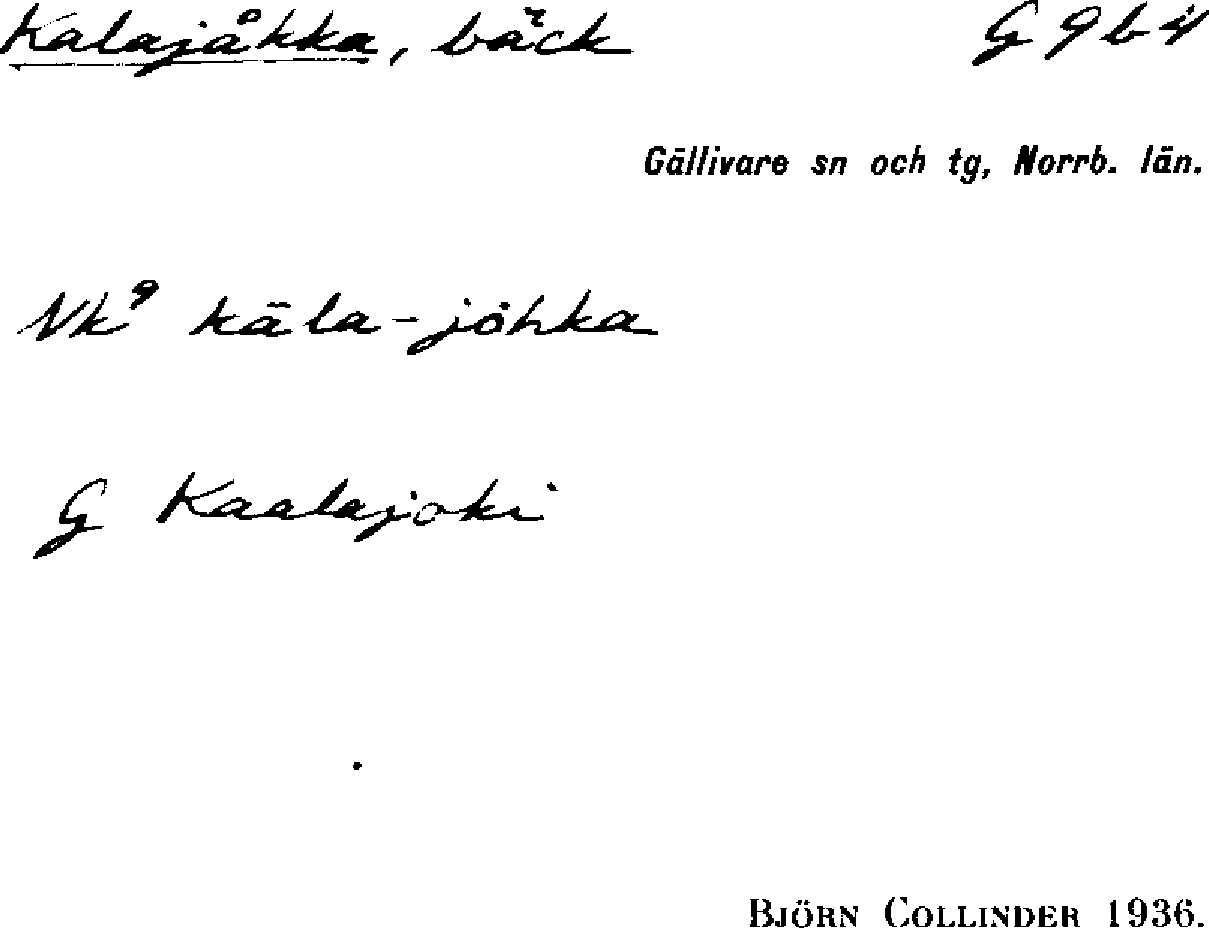 Kalajåkka, bäck G 9 b 4
Gällivare sn och tg, Norrb. län.
Nk⁹ kāla-jȯhka
G Kaalajoki
BJÖRN COLLINDER 1936.